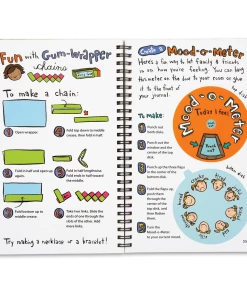 Fun with Gum-Wrapper
chains
To make a chain:
Open wrapper.
Fold top down to middle
crease, then fold in half.
Fold in half and open up
again.
Fold in half lengthwise.
Fold ends in half toward
middle.
Fold bottom up to
middle crease.
Take two links. Slide the
ends of one through the
slots of the other. More
links, continue.
Try making a necklace or a bracelet!
Create a Mood-o-Meter
Here's a fun way to let family & friends
in on how you're feeling. You can hang
this meter on the door to your room or glue
it to the front of
your journal.
To make:
Punch out
both disks.
Punch out the
window and the
center of the
top disk.
Punch up the three flaps
in the center of the
bottom disk.
Fold the flaps up,
push them
through the
center of the
top disk, and
then flatten
them.
Turn the
Mood-o-Meter
to your current mood!
Mood-o-Meter
Today I feel:
Punch
out